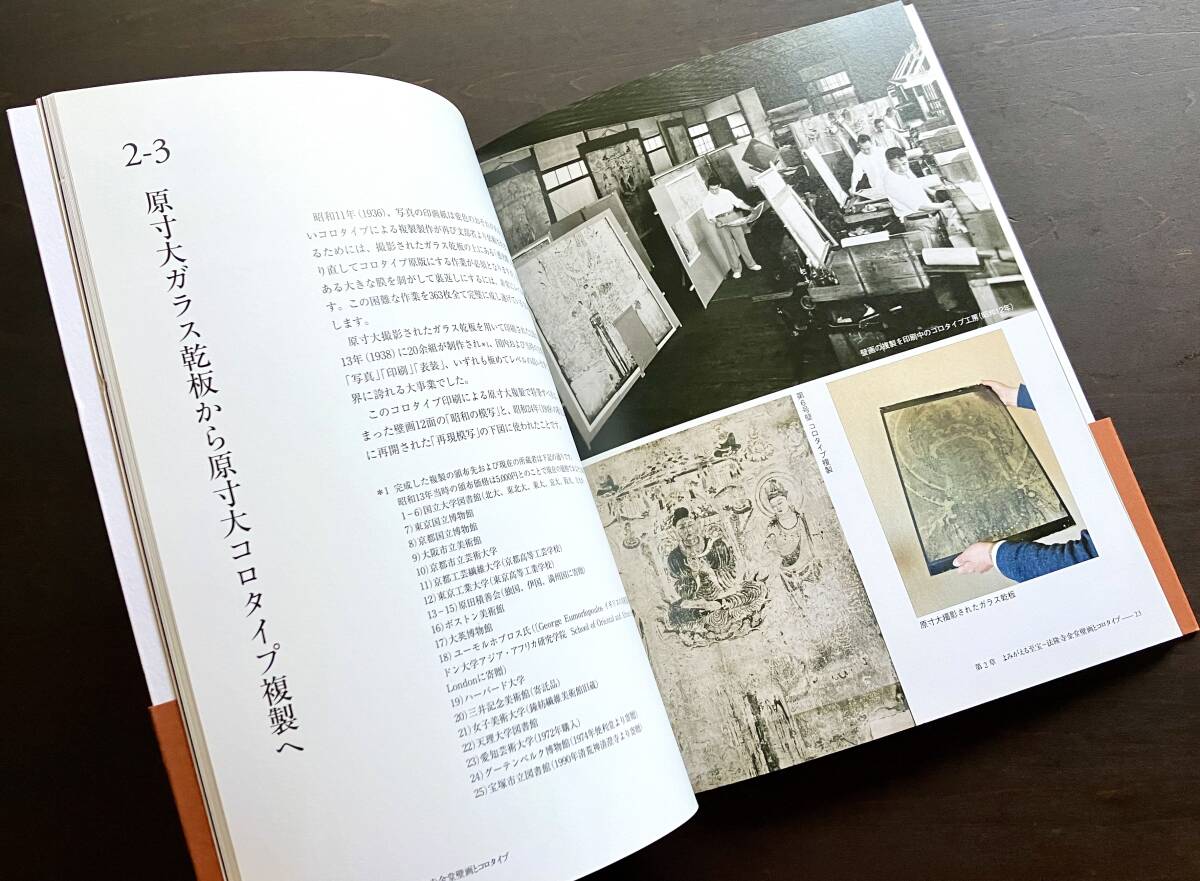 2-3
原寸大ガラス乾板から原寸大コロタイプ複製へ
昭和11年(1936)、写真の印画紙は変色のおそれが
いコロタイプによる複製製作が再び文部省より
るためには、撮影されたガラス乾板の上にある
り直してコロタイプ原版にする作業が必須となります
ある大きな膜を剥がして裏返しにするには、非常に
す。この困難な作業を363枚全て完璧に成し遂げている
します。
原寸大撮影されたガラス乾板を用いて印刷された
13年(1938)に20余組が制作され*1、国内および
「写真」「印刷」「表装」、いずれも極めてレベルの高い
界に誇れる大事業でした。
このコロタイプ印刷による原寸大複製で特筆すべき
まった壁画12面の「昭和の模写」と、昭和24年(1949)
に再開された「再現模写」の下図に使われたことです。
*1 完成した複製の頒布先および現在の所蔵者は下記の通りです。
昭和13年当時の頒布価格は5,000円とのことで現在の価値
1-6)国立大学図書館(北大、東北大、東大、京大、阪大、九大)
7)東京国立博物館
8)京都国立博物館
9)大阪市立美術館
10)京都市立芸術大学
11)京都工芸繊維大学(京都高等工芸学校)
12)東京工業大学(東京高等工業学校)
13-15)原田積善会(独国、伊国、満州国に寄贈)
16)ボストン美術館
17)大英博物館
18)ユーモルホプロス氏(「George Eumorfopoulos イギリスの
ドン大学アジア・アフリカ研究学院 School of Oriental and
Londonに寄贈)
19)ハーバード大学
20)三井記念美術館(寄託品)
21)女子美術大学(鐘紡繊維美術館旧蔵)
22)天理大学図書館
23)愛知芸術大学(1972年購入)
24)グーテンベルク博物館(1974年便利堂より寄贈)
25)宝塚市立図書館(1990年清荒神清澄寺より寄贈)
金堂壁画とコロタイプ
壁画の複製を印刷中のコロタイプ工房(昭和12年)
第6号壁 コロタイプ複製
原寸大撮影されたガラス乾板
第2章 よみがえる至宝-法隆寺金堂壁画とコロタイプ——23